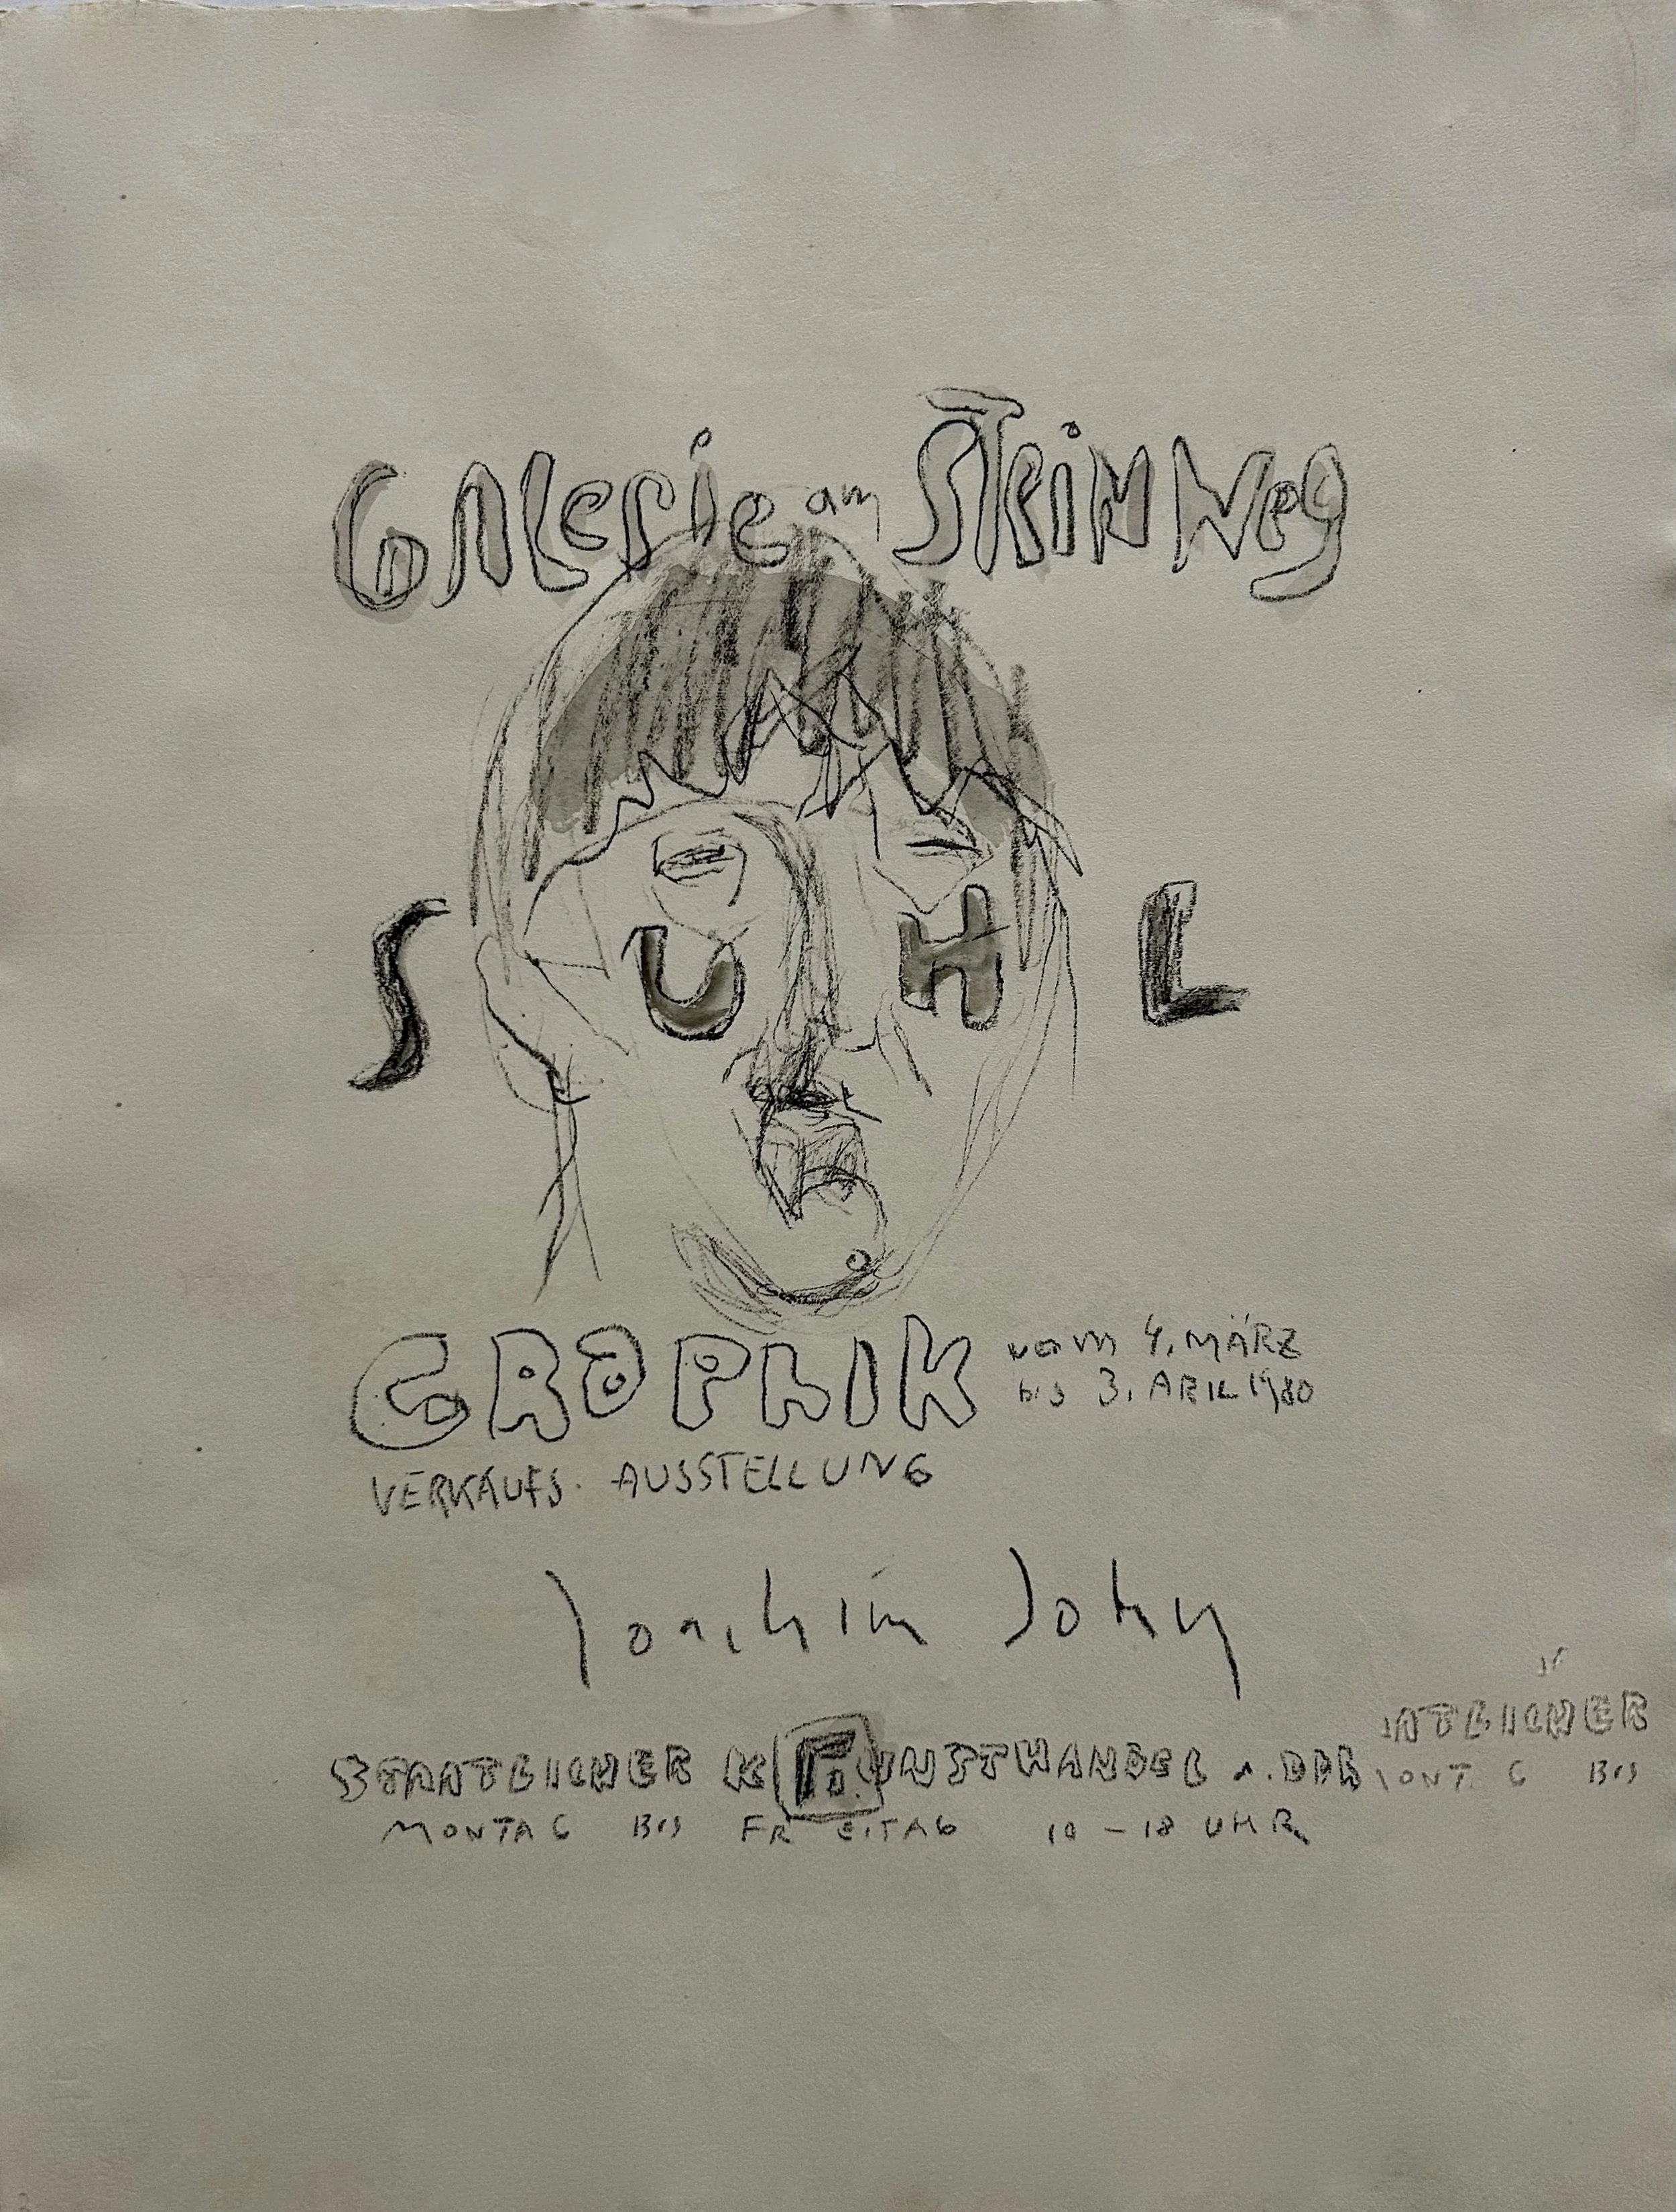 Galerie am Steinweg
SUHL
GRAPHIK vom 4. MÄRZ
bis 3. APRIL 1980
VERKAUFS. AUSSTELLUNG
Joachim John
STAATLICHER KUNSTHANDEL d. DDR
ATLICHER
MONTAG BIS FREITAG 10 - 18 UHR
MONT G BIS